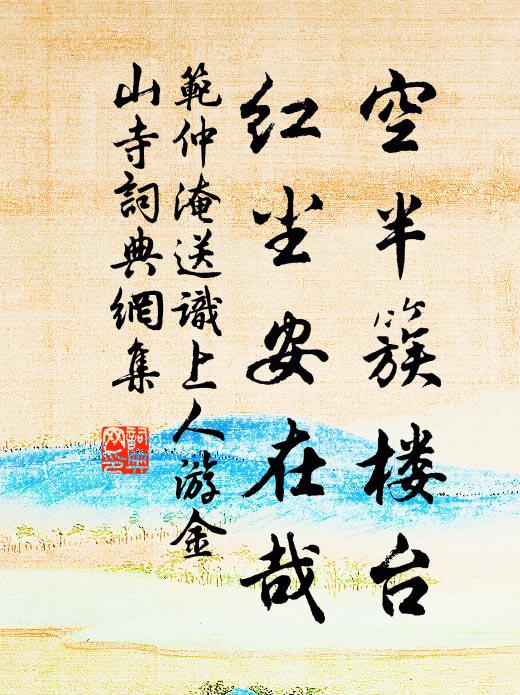 空半簇楼台
红尘安在哉
範仲淹送識上人游金
山寺詞典網集